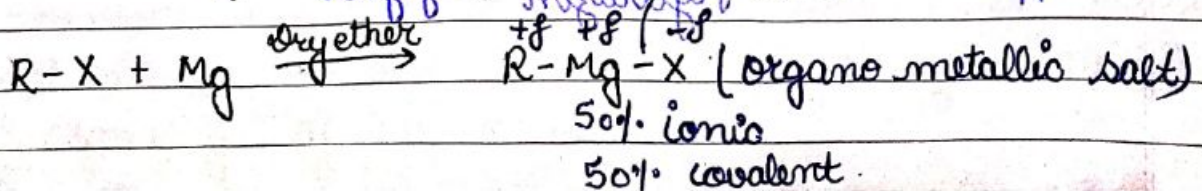 +δ +δ | -δ
R-X + Mg dry ether → R-Mg-X (organo metallic salt)
50% ionic
50% covalent.